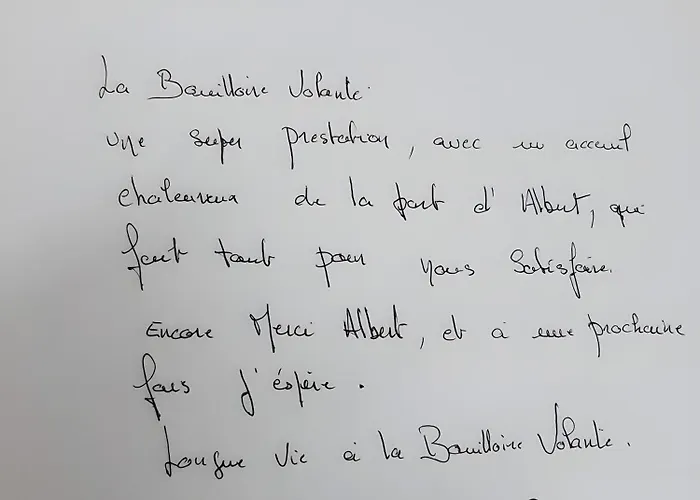 La Bouilloire Volante.
une super prestation, avec un accueil
chaleureux de la part d'Albert, qui
fait tout pour nous satisfaire.
Encore Merci Albert, et à une prochaine
fois j'éspère.
Longue vie à la Bouilloire Volante.